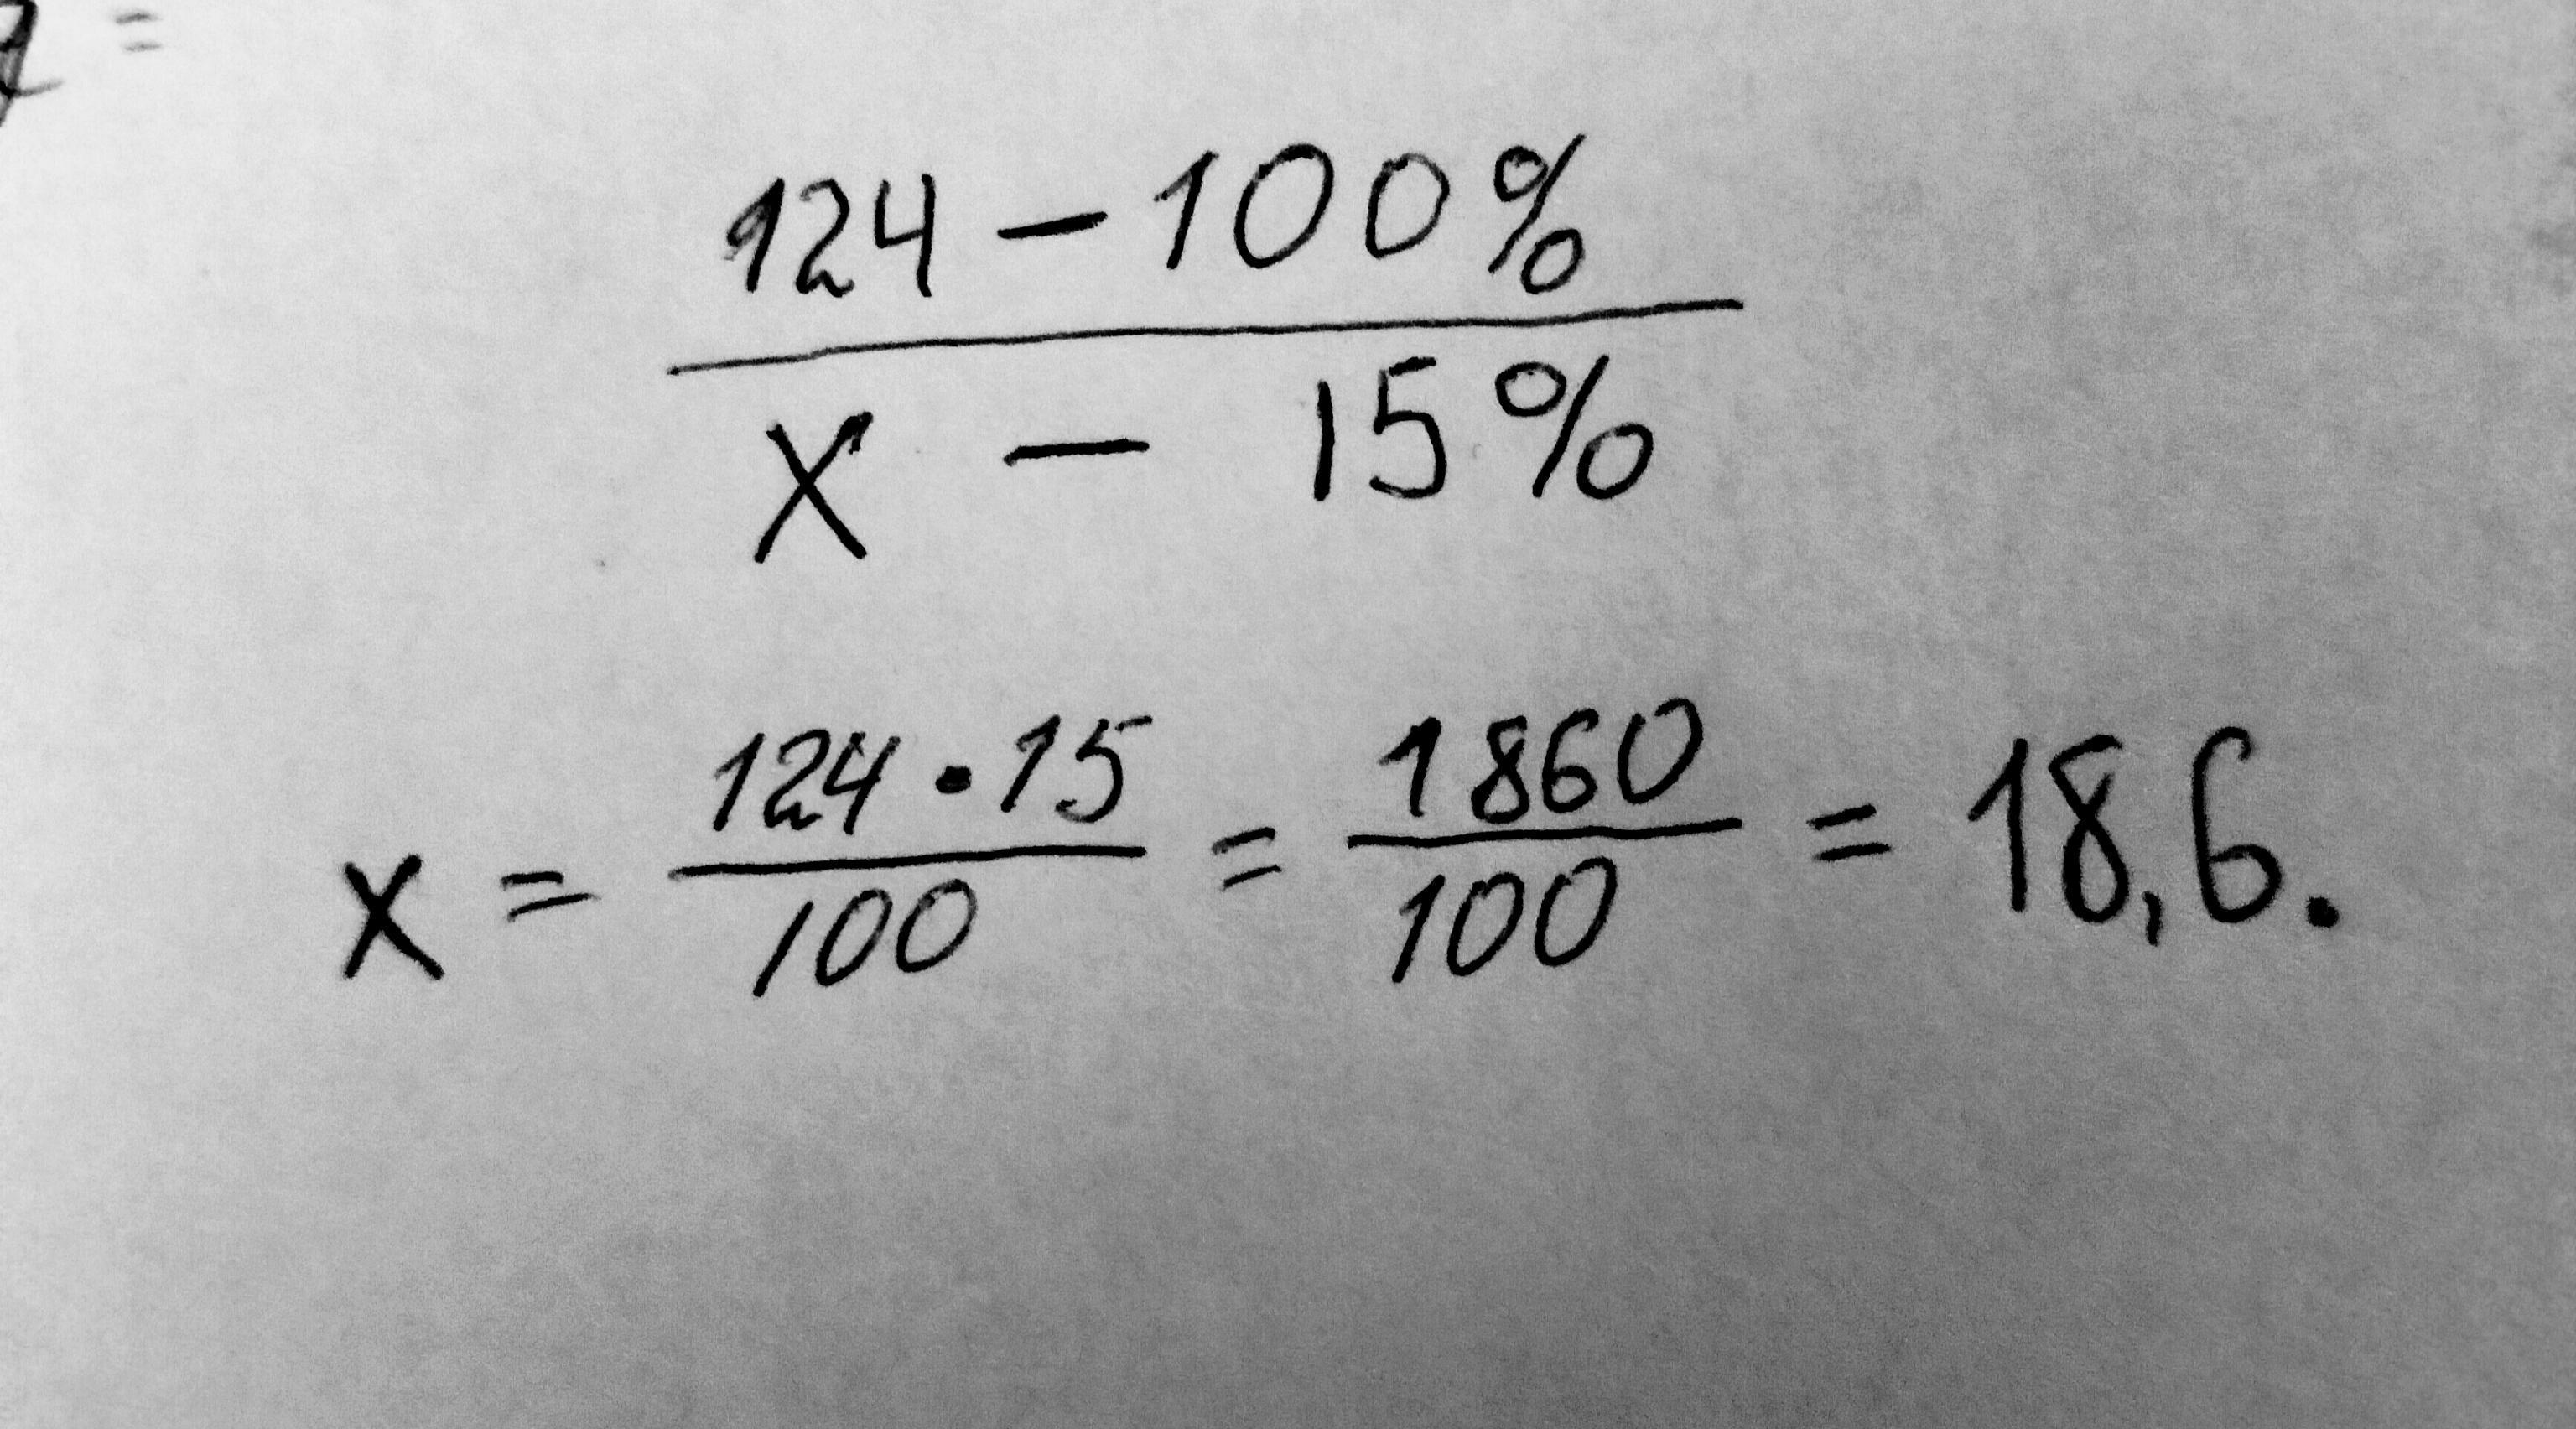 =
124 - 100%
x - 15%
x = 124 · 15 / 100 = 1860 / 100 = 18,6.